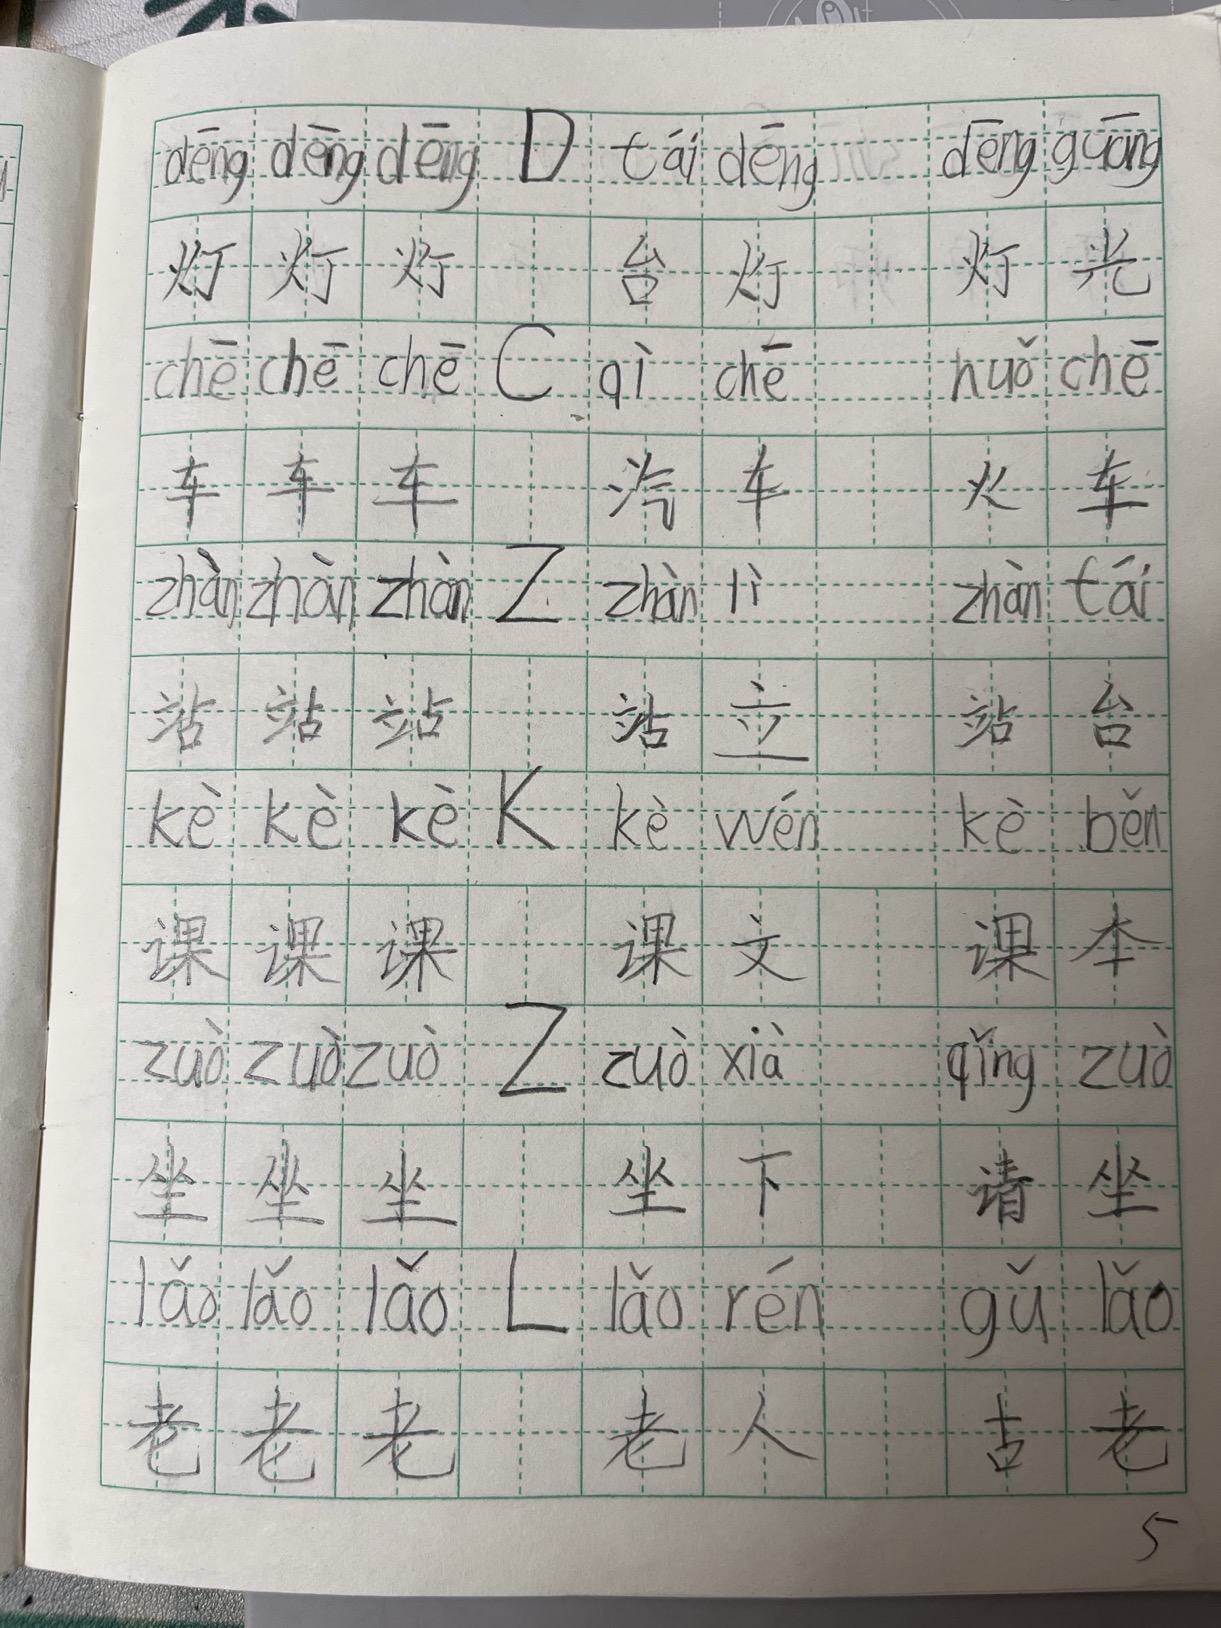 dēng dēng dēng D tái dēng dēng guāng
灯 灯 灯 台 灯 灯 光
chē chē chē C qì chē huǒ chē
车 车 车 汽 车 火 车
zhàn zhàn zhàn Z zhàn lì zhàn tái
站 站 站 站 立 站 台
kè kè kè K kè wén kè běn
课 课 课 课 文 课 本
zuò zuò zuò Z zuò xià qǐng zuò
坐 坐 坐 坐 下 请 坐
lǎo lǎo lǎo L lǎo rén gǔ lǎo
老 老 老 老 人 古 老
5